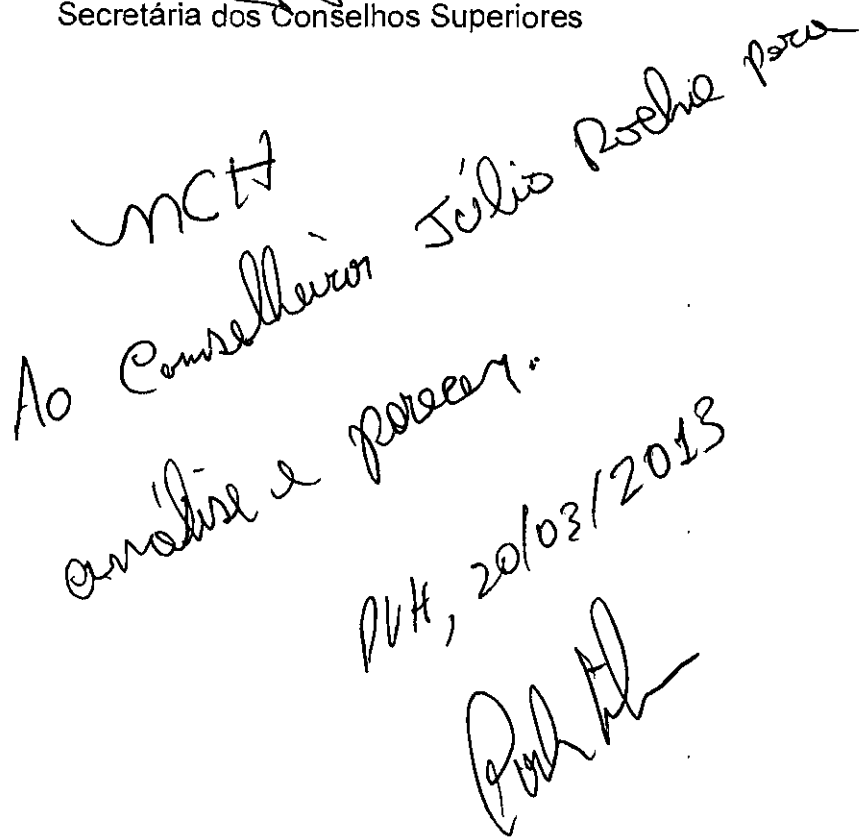 Secretária dos Conselhos Superiores
Ao Conselheiro Júlio Rocha para
análise e parecer.
PVH, 20/03/2013